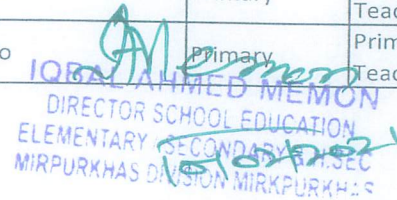 Teac
o Primary Prim
Teac
IQBAL AHMED MEMON
DIRECTOR SCHOOL EDUCATION
ELEMENTARY SECONDARY & H.SEC
MIRPURKHAS DIVISION MIRKPURKHAS